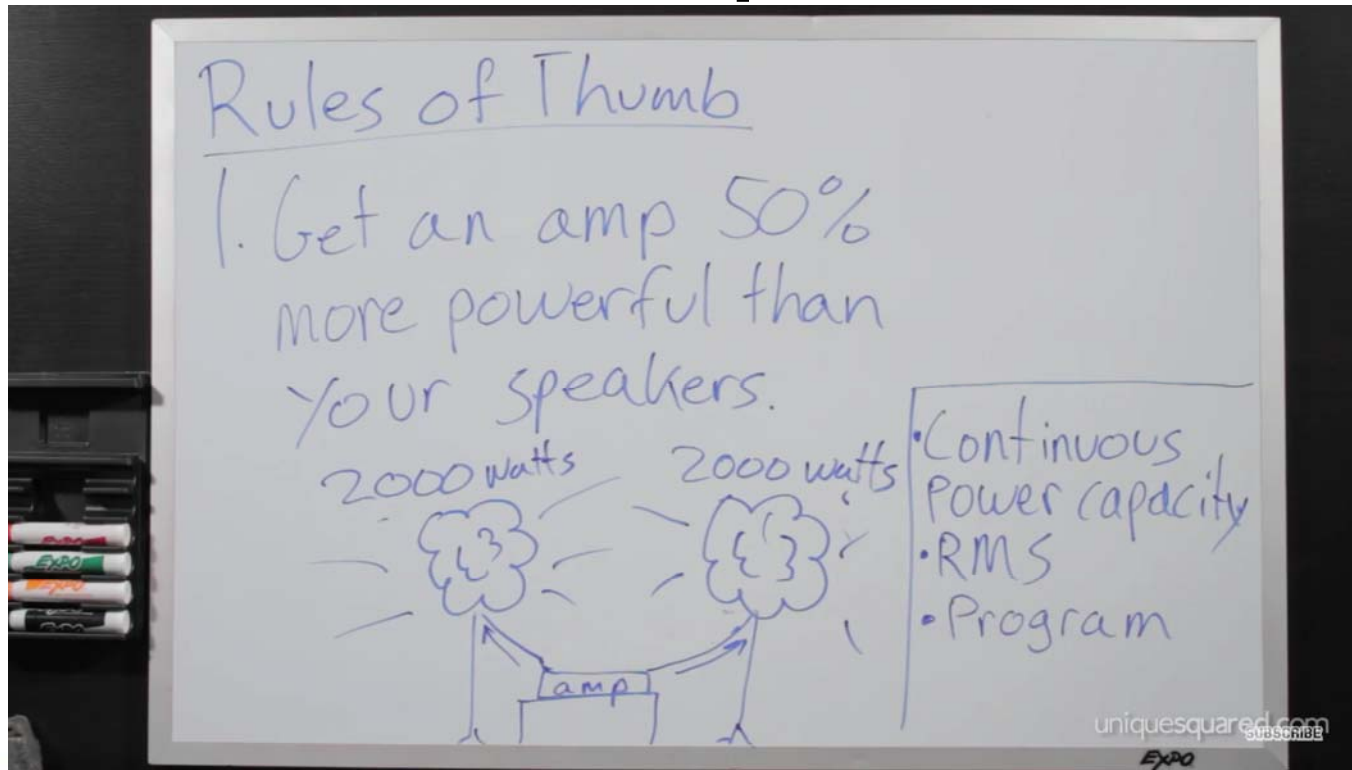 Rules of Thumb
1. Get an amp 50%
more powerful than
your speakers.
2000 watts
2000 watts
amp
•Continuous
Power capacity
•RMS
•Program
EXPO
EXPO
uniquesquared.com
SUBSCRIBE
EXPO